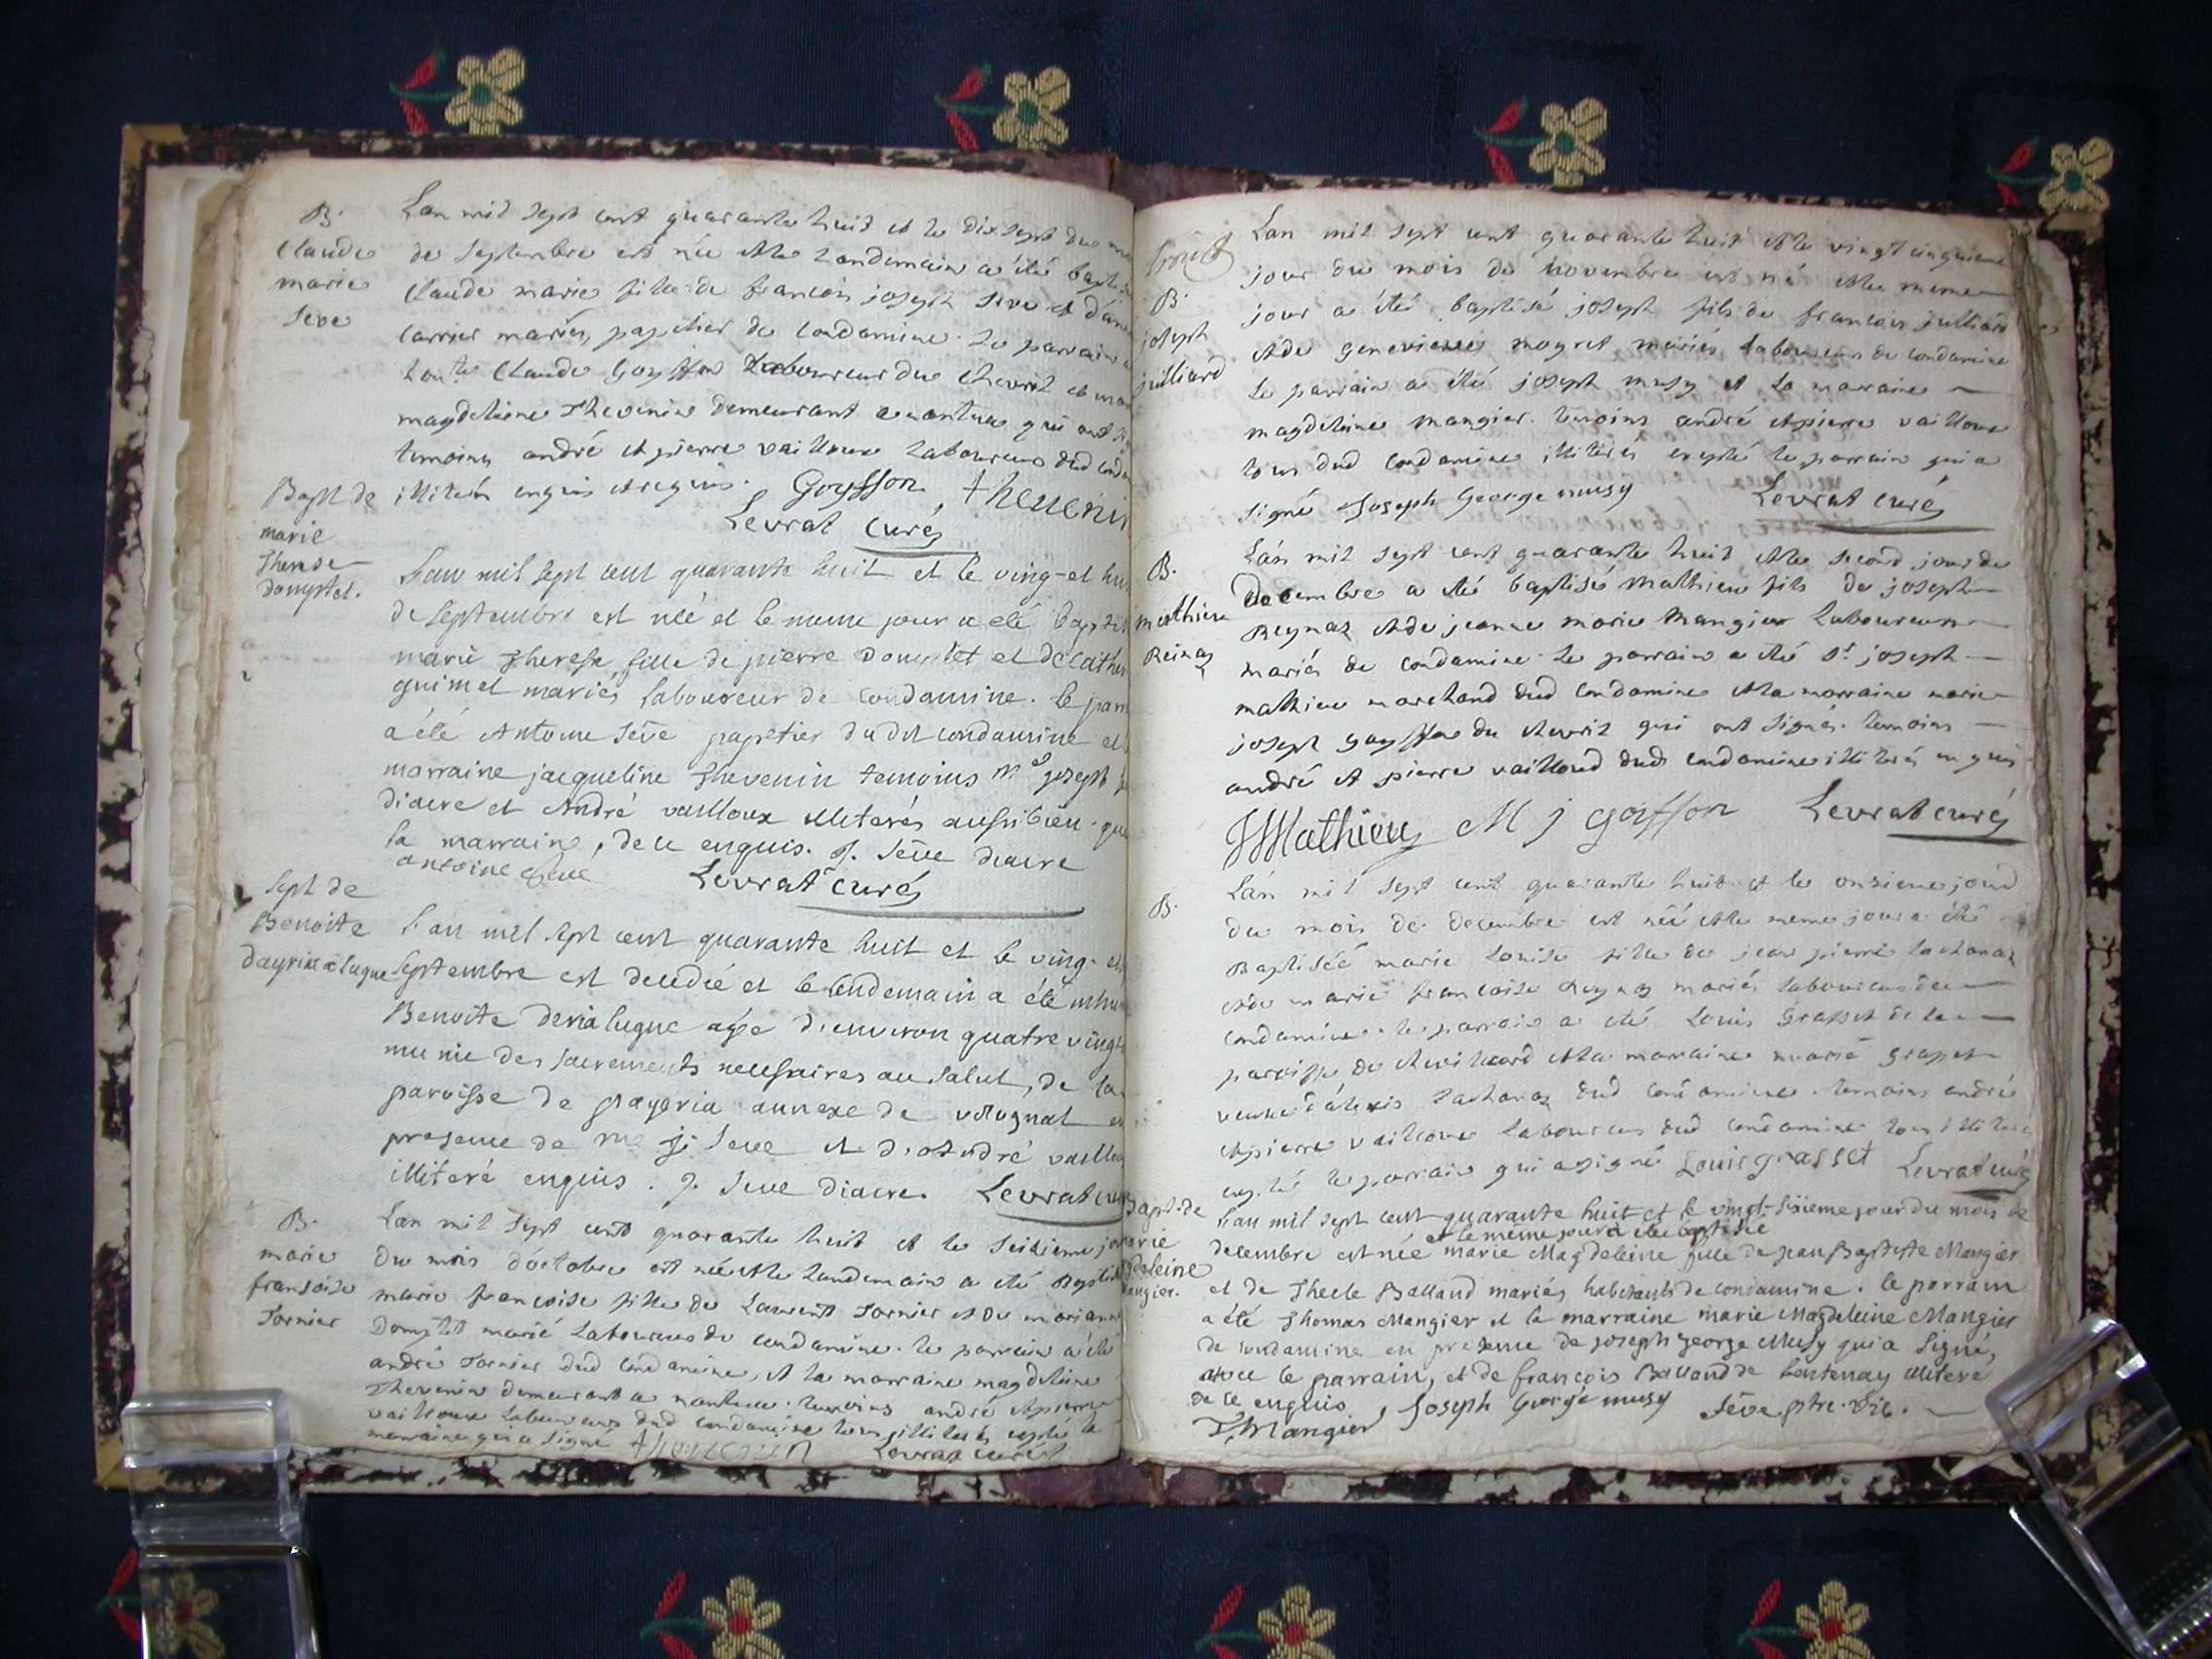 B.
Claude
marie
seve
Lan mil sept cent quarante huit et le dix sept du
de Septembre est née et le landemain a été
Claude marie fille de francois joseph seve et
carrier mariés, papetier de Condamine. Le parrain
Claude Goyffon Laboureur du Chevril et
magdeleine Thevenin demeurant a nantua qui ont
temoins andré et pierre vailloux Laboureurs dud
illiterés enquis et requis. Goyffon thevenin
Levrat curé
Bapt de
marie
Therese
Domptet.
L'an mil sept cent quarante huit et le ving-et
de Septembre est néé et le meme jour a été
marie Therese fille de pierre Domptet et de
guimet mariés laboureur de Condamine. le
a été Antoine Séve papetier dudit condamine et
marraine jacqueline Thevenin temoins Mr joseph
diacre et André vailloux illiterés aussi bien que
la marraine, de ce enquis. J. Séve diacre
antoine seve Levrat curé
Sept de
Benoite
L'an mil sept cent quarante huit et le ving-
Septembre est decedée et le lendemain a été
Benoite derialugue agée d'environ quatre vingt
munie des sacrements necessaires au salut, de la
paroisse de grayeria annexe de volognat
presence de J. Seve et d'André
illiteré enquis. J. Seve diacre. Levrat
B.
marie
fransoise
Tornier
Lan mil sept cent quarante huit et le seisieme
du mois d'octobre est née et le landemain a été
marie francoise fille de Laurent Tornier et de marianne
Domptet mariés Laboureurs de Condamine. le parrain a été
andré Tornier dud Condamine, et la marraine magdeleine
Thevenin demeurant a nantua. temoins andré et pierre
vailloux Laboureurs dud Condamine tous illiterés exepté la
marraine qui a signé thevenin Levrat curé
B.
joseph
juilliard
Lan mil sept cent quarante huit et le vingt cinquieme
jour du mois de Novembre est né et le meme
jour a été baptisé joseph fils de francois juilliard
et de genevieve moyret mariés laboureurs de Condamine
Le parrain a été joseph musy et la marraine
magdeleine mangier. temoins andré et pierre vailloux
tous dud Condamine illiterés exepté le parrain qui a
signé Joseph George musy Levrat curé
B.
mathieu
Reinaz
Lan mil sept cent quarante huit et le second jour de
Decembre a été baptisé Mathieu fils de joseph
Reynaz et de jeanne marie Mangier Laboureurs
mariés de Condamine. Le parrain a été Sr. joseph
mathieu marchand dud Condamine et la marraine marie
joseph goyffon du chevril qui ont signés. temoins
andré et pierre vailloud dud Condamine illiterés enquis
JJMathieu M j goiffon Levrat curé
B.
Lan mil sept cent quarante huit et le onsieme jour
du mois de decembre est néé et le meme jour a été
Baptisée marie Louise fille de jean pierre
et de marie francoise Reynaz mariés laboureurs de
Condamine. le parrain a été Louis Grasset de la
paroisse de et la marraine marie
veuve d'alexis dud Condamine. temoins andré
et pierre vailloux Laboureurs dud Condamine tous illiterés
exepté le parrain qui a signé Louis grasset Levrat curé
Bapt. de
marie
magdeleine
Mangier.
L'an mil sept cent quarante huit et le vingt-sixieme jour du mois de
et le même jour a été baptisée
decembre est née marie Magdeleine fille de jean Baptiste Mangier
et de Thecle Balland mariés habitants de Condamine. le parrain
a été Thomas Mangier et la marraine marie Magdeleine Mangier
de condamine en presence de joseph george Musy qui a signé,
avec le parrain, et de françois Balland de illiteré
de ce enquis, Joseph George musy Séve ptre. vic.
T, Mangier